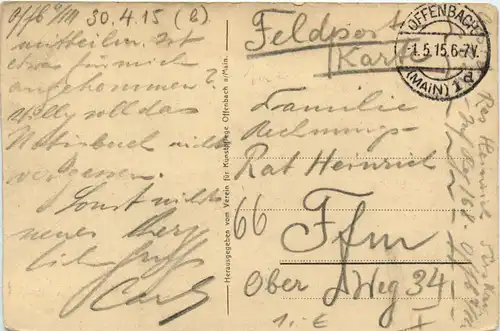 Offb a/M 30.4.15 (b)
mitteilen. Ist
etwas für mich
angekommen?
Willy soll das
Notizbuch nicht
vergessen.
Sonst nichts
neues. Herzl
Carl
Herausgegeben vom Verein für Kunstpflege Offenbach a/Main.
Feldpost
Karte
OFFENBACH
-1.5.15.6-7V.
(MAIN) 1 d
Familie
Rechnungs-
Rat Heinrich
66
Ffm
Ober Weg 34
II
1.-E